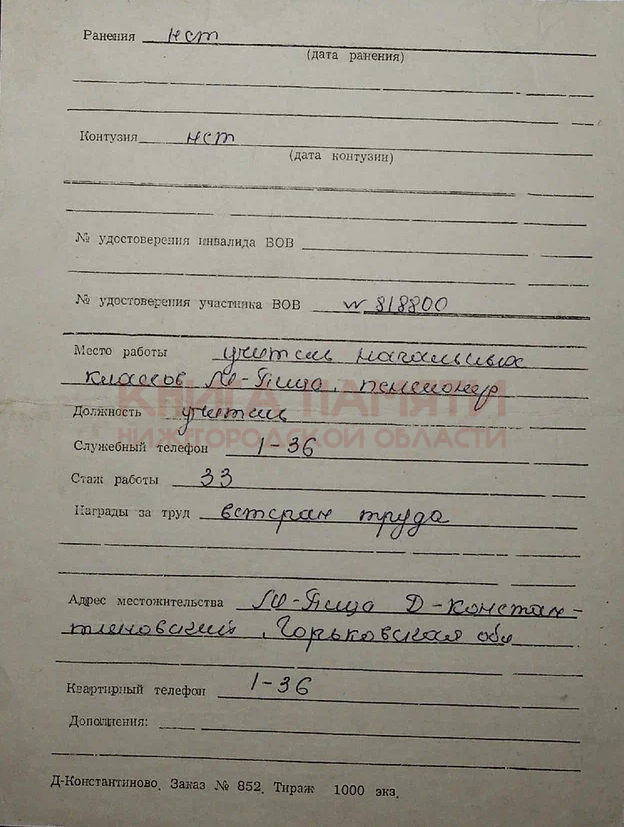 Ранения нет
(дата ранения)
Контузия нет
(дата контузии)
№ удостоверения инвалида ВОВ
№ удостоверения участника ВОВ № 818800
Место работы учитель начальных
классов М-Пица, пенсионер
КНИГА ПАМЯТИ
Должность учитель
НИЖЕГОРОДСКОЙ ОБЛАСТИ
Служебный телефон 1-36
Стаж работы 33
Награды за труд ветеран труда
Адрес местожительства М-Пица Д-Констан-
тиновский, Горьковская обл
Квартирный телефон 1-36
Дополнения:
Д-Константиново. Заказ № 852. Тираж 1000 экз.